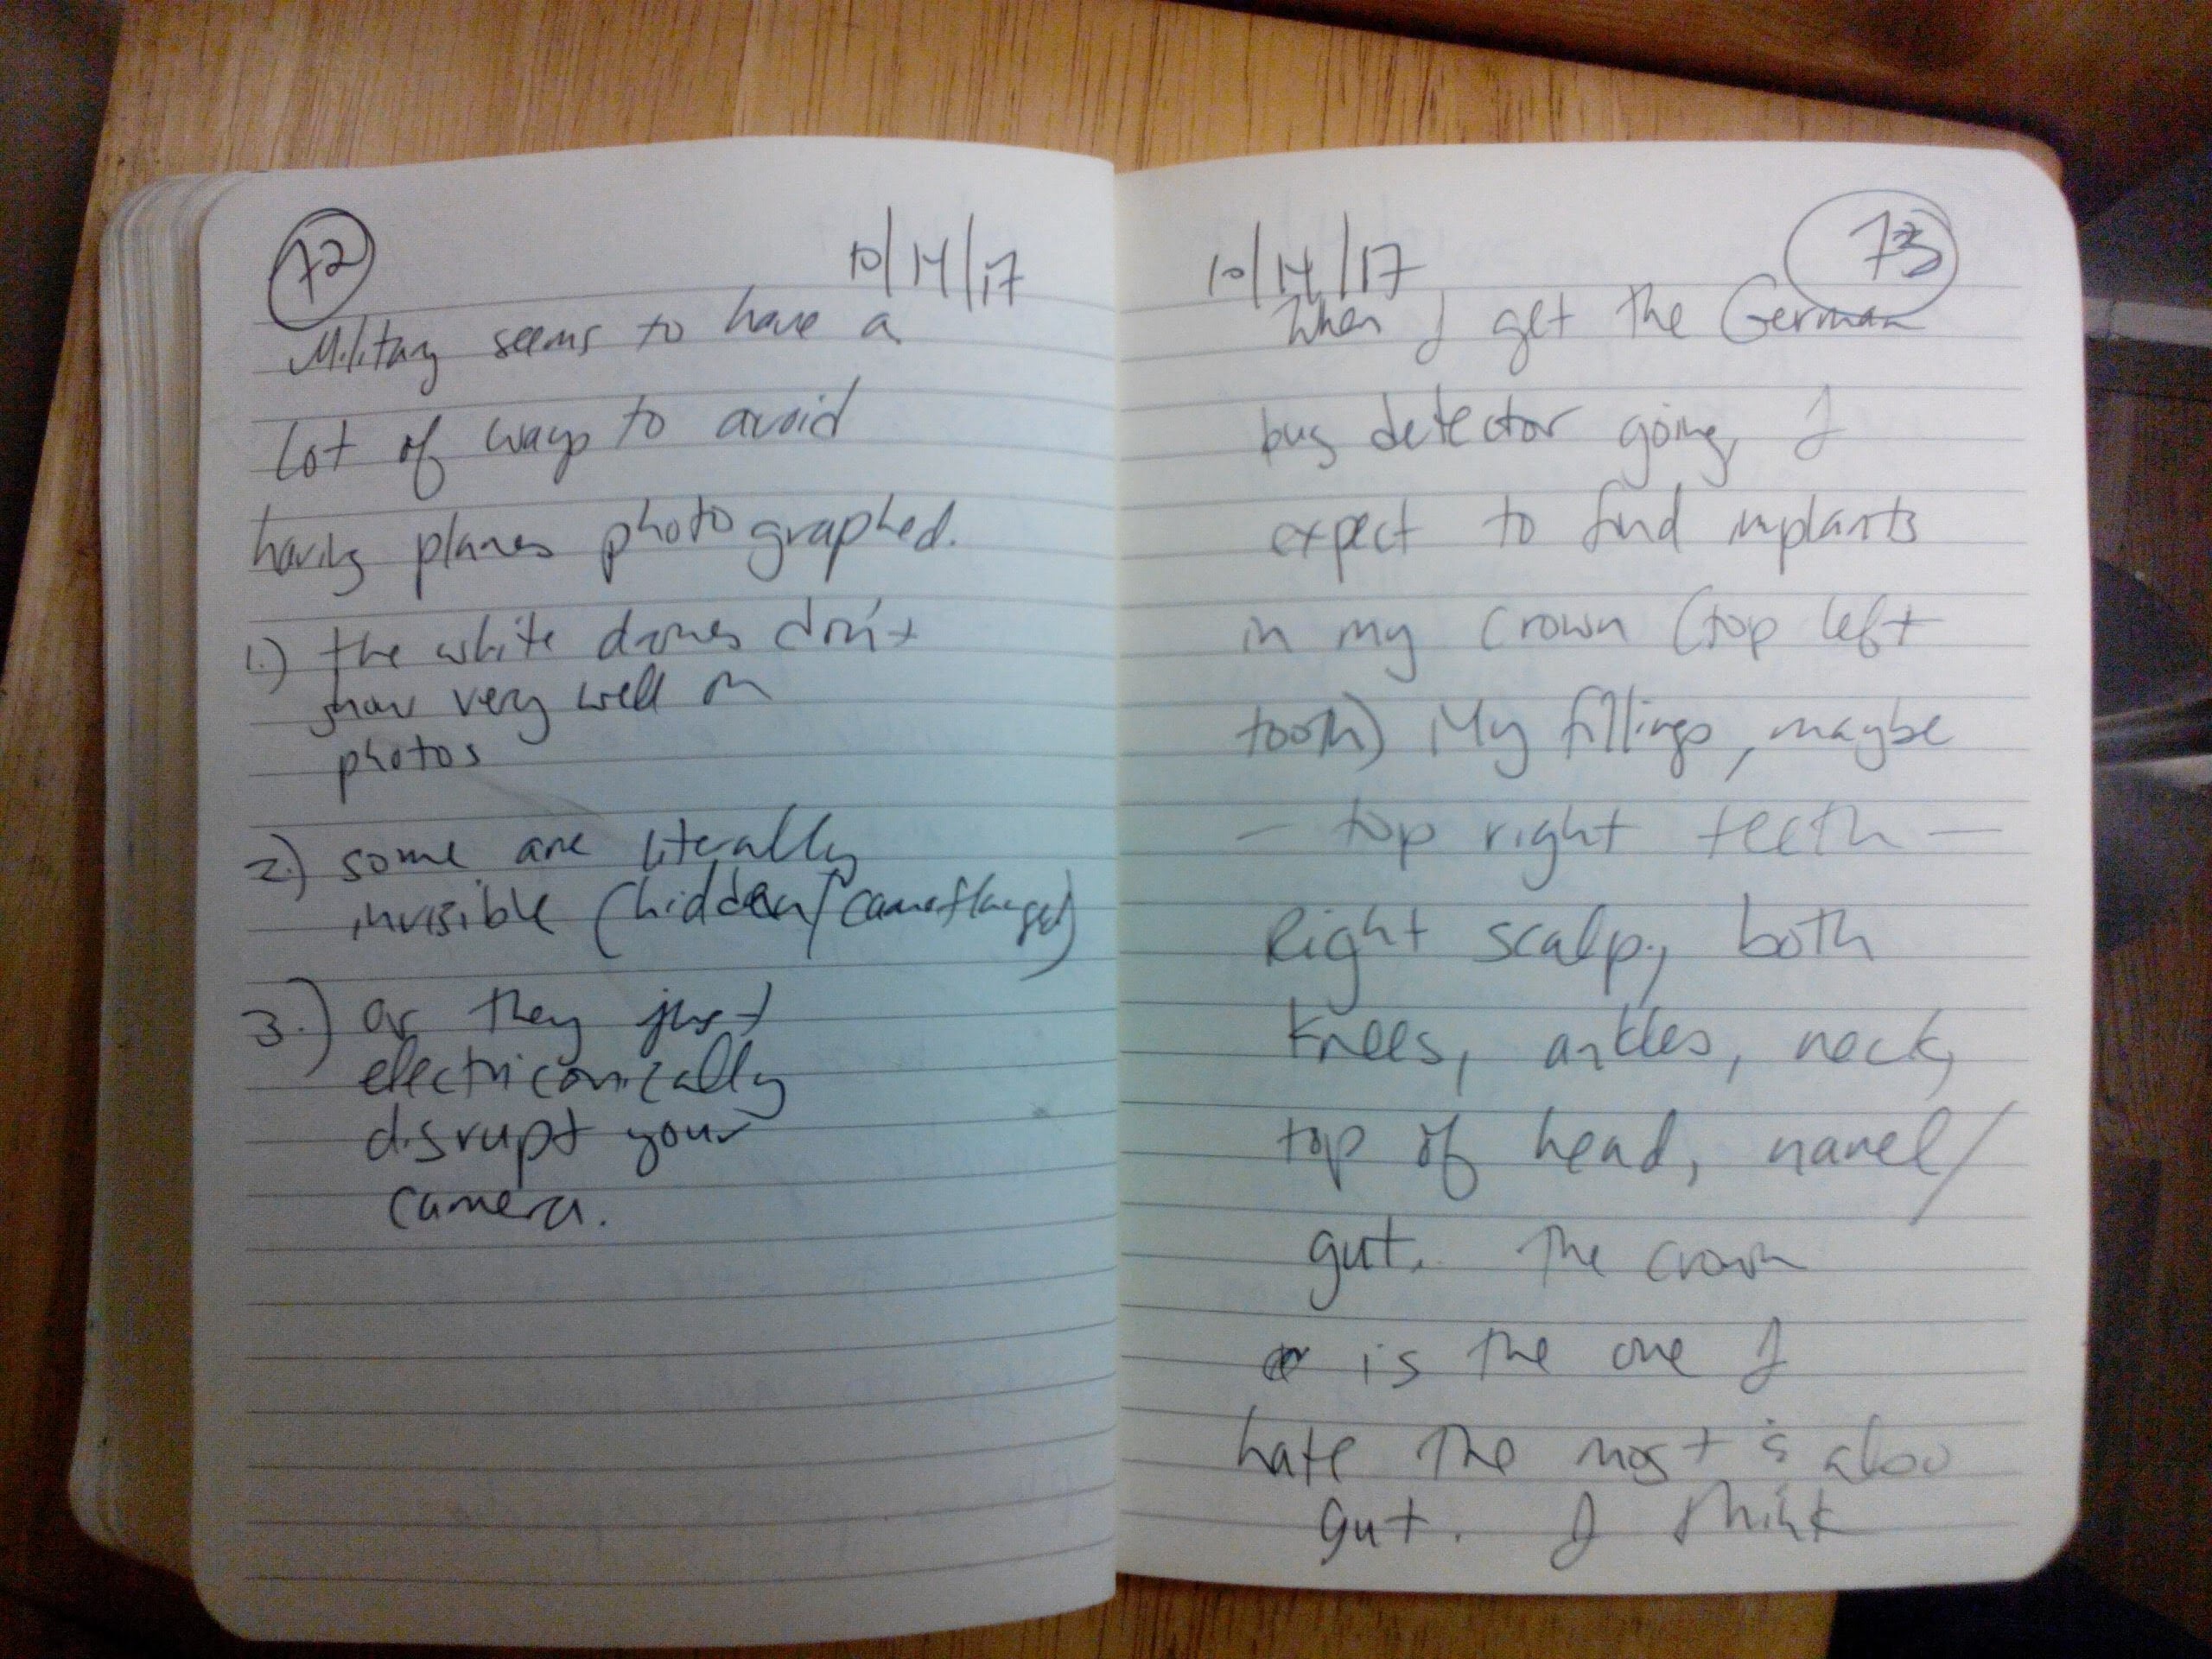 72
10/14/17
Military seems to have a
lot of ways to avoid
having planes photographed.
1.) the white drones don't
show very well on
photos
2.) some are literally
invisible (hidden/camoflauged)
3.) or they just
electriconically
disrupt your
camera.
10/14/17
73
When I get the German
bug detector going, I
expect to find implants
in my crown (top left
tooth) My fillings, maybe
– top right teeth –
Right scalp, both
knees, ankles, neck,
top of head, navel/
gut. The crown
is the one I
hate the most is also
gut. I think